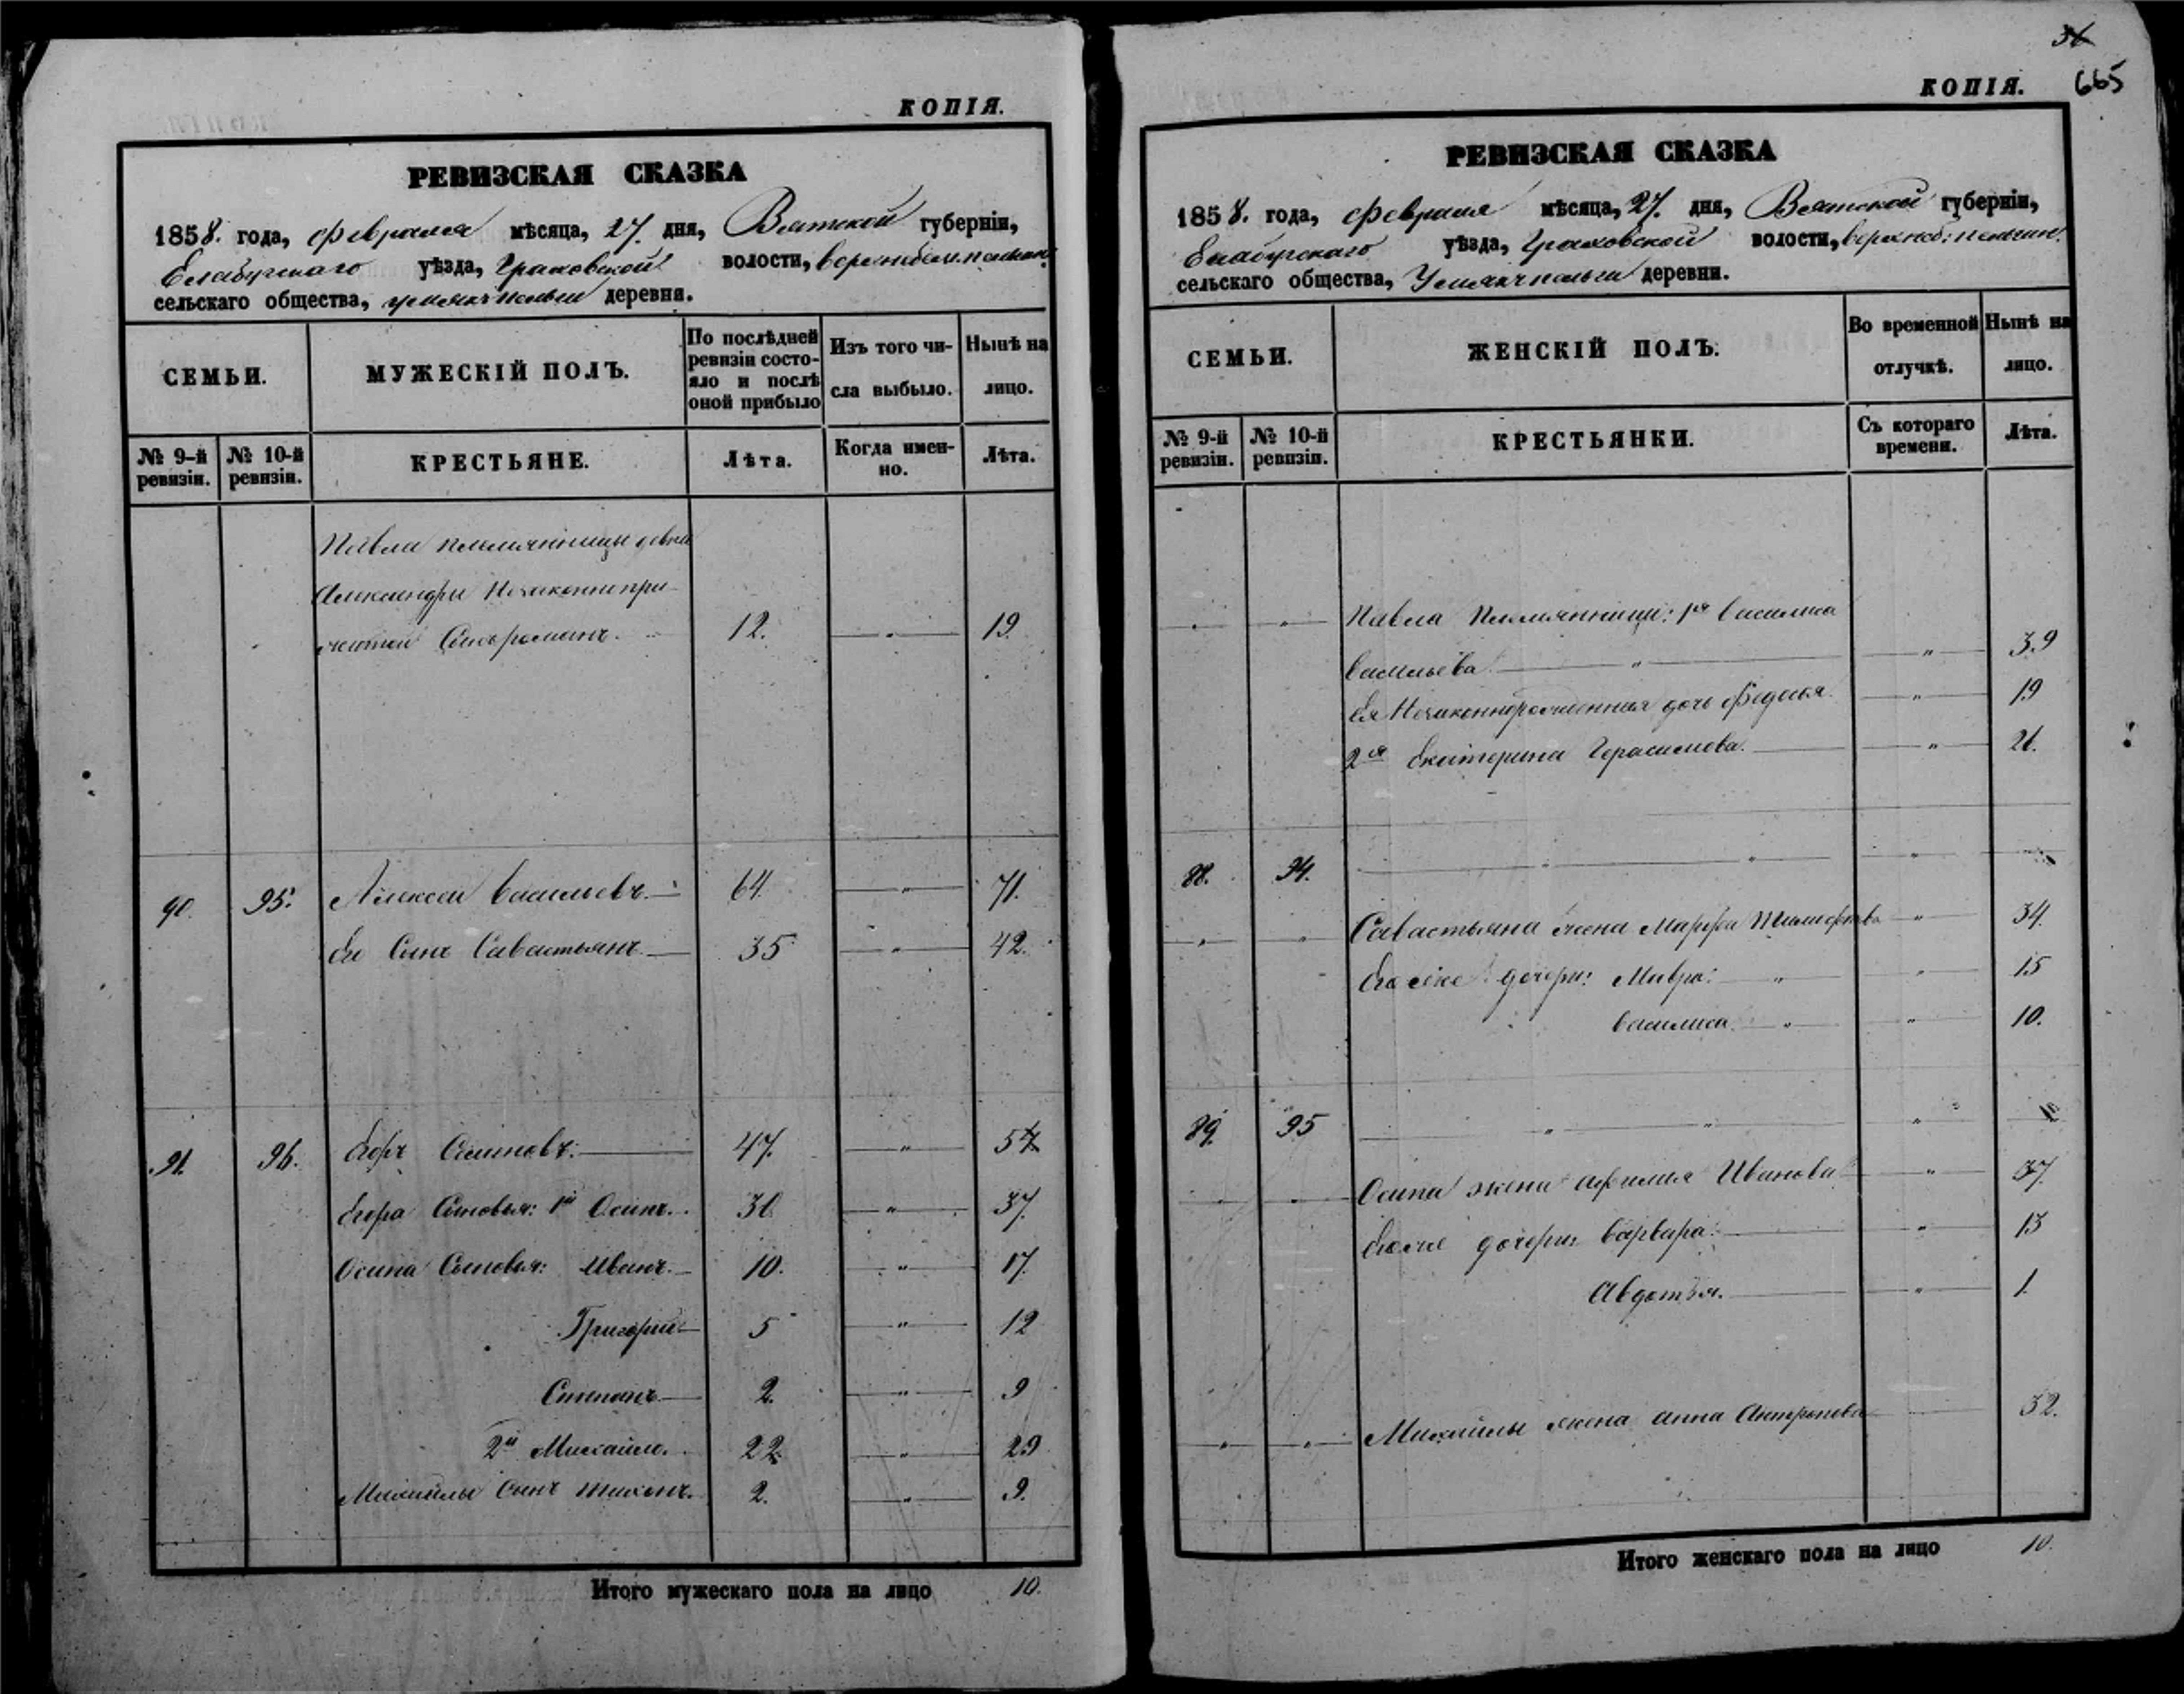 КОПІЯ.
РЕВИЗСКАЯ СКАЗКА
1858. года, февраля мѣсяца, 27. дня, Вятской губерніи,
Елабугскаго уѣзда, Граховской волости,
сельскаго общества, деревни.
СЕМЬИ.
МУЖЕСКІЙ ПОЛЪ.
По послѣдней ревизіи состо-
яло и послѣ оной прибыло
Изъ того чи-
сла выбыло.
Нынѣ на
лицо.
№ 9-й ревизіи.
№ 10-й ревизіи.
КРЕСТЬЯНЕ.
Лѣта.
Когда имен-
но.
Лѣта.
Павла племянницы девки
Александры незаконнопри-
житой Сынъ романъ. 12. — „ — 19.
90. 95. Алексей васильевъ. — 64. — „ — 71.
Его Сынъ Савастьянъ. — 35 — „ — 42.
91. 96. Егоръ Осиповъ. — 47. — „ — 54
Егора Сыновья: 1й Осипъ. 30 — „ — 37.
Осипа Сыновья: Иванъ. — 10. — „ — 17.
Григорий — 5 — „ — 12
Степанъ — 2. — „ — 9
2й Михайло. 22 — „ — 29
Михайлы Сынъ тихонъ. 2. — „ — 9.
Итого мужескаго пола на лицо 10.
36
665
КОПІЯ.
РЕВИЗСКАЯ СКАЗКА
1858. года, февраля мѣсяца, 27. дня, Вятской губерніи,
Елабугскаго уѣзда, Граховской волости,
сельскаго общества, деревни.
СЕМЬИ.
ЖЕНСКІЙ ПОЛЪ.
Во временной
отлучкѣ.
Нынѣ на
лицо.
№ 9-й ревизіи.
№ 10-й ревизіи.
КРЕСТЬЯНКИ.
Съ котораго
времени.
Лѣта.
„ — „ — Павла Племянницы: 1я василиса
васильева — „ — — „ — 39
Ея Незаконнорожденная дочь Федосья — „ — 19
2я Екатерина Герасимова. — — „ — 21.
88. 94. — „ — „ — „ —
„ — „ — Савастьяна жена Марфа — „ — 34.
Его же дочери: Мавра: — „ — „ — 15
василиса — „ — „ — 10.
89. 95 — „ — „ — „
— Осипа жена Иванова — „ — 37.
Его же дочери: варвара: — — „ — 13
Авдотья. — — „ — 1.
„ — „ — Михайлы жена анна Антропова — 32.
Итого женскаго пола на лицо 10.